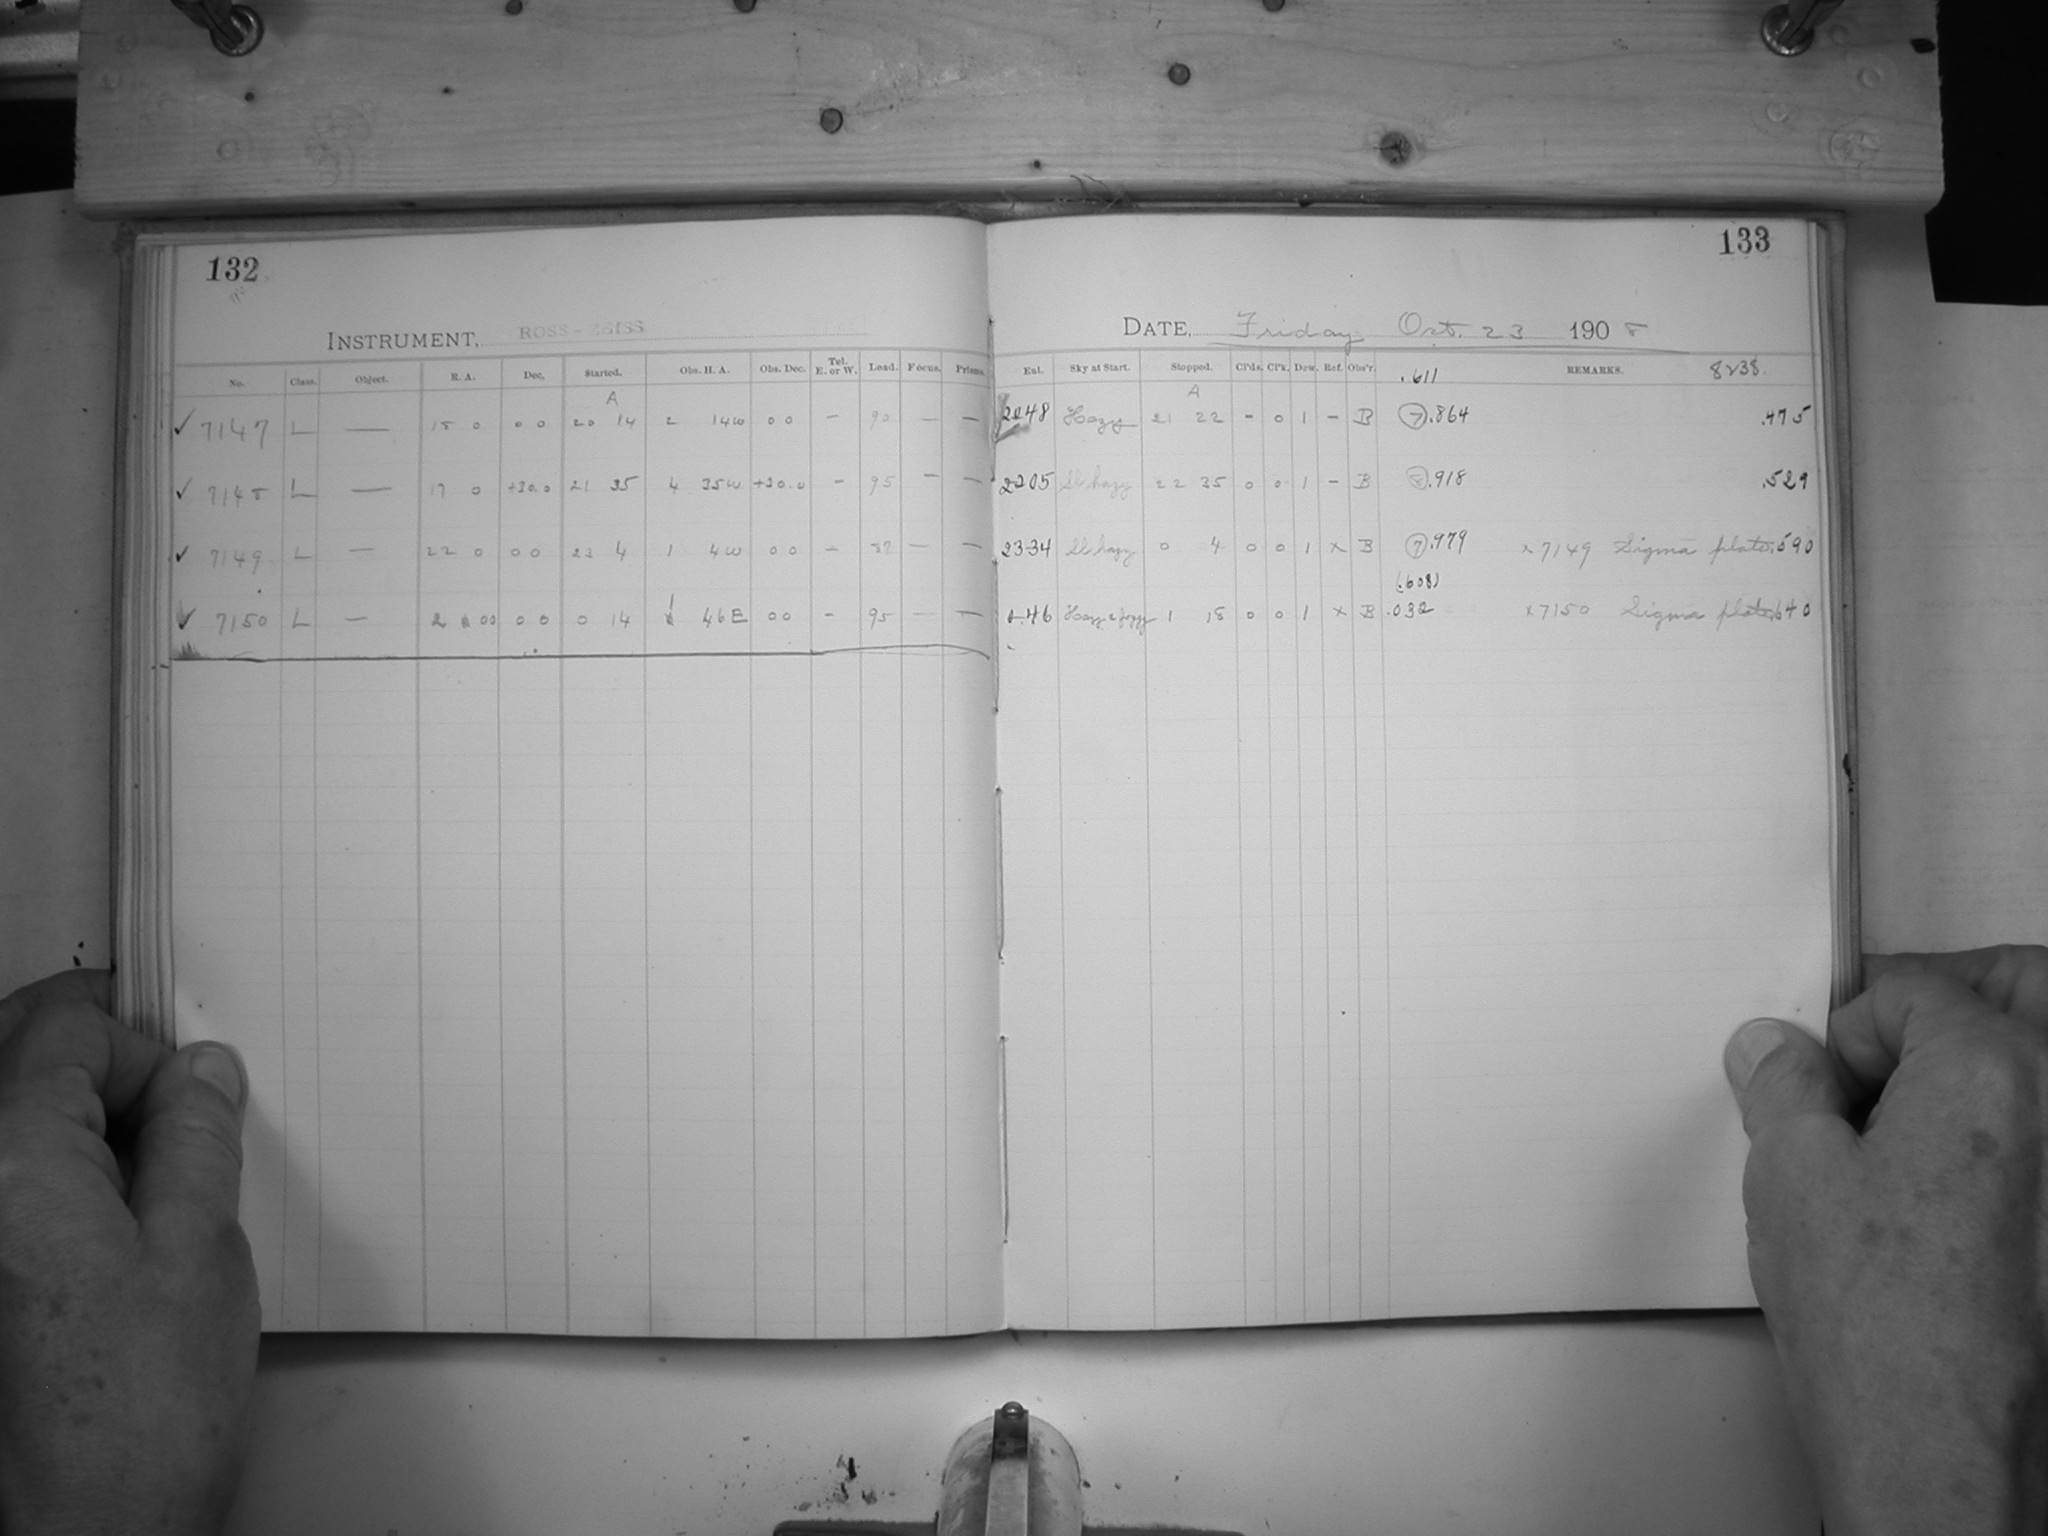 132
133
INSTRUMENT, ROSS-ZEISS
DATE, Friday Oct. 23 1908
No. Class. Object. R. A. Dec. Started. Obs. H. A. Obs. Dec. Tel. E. or W. Load. Focus. Prisms. Enl. Sky at Start. Stopped. Cl'ds. Cl'k. Dew. Ref. Obs'r. .611 REMARKS. 8238
A A
✓ 7147 L — 18 0 0 0 20 14 2 14W 0 0 – 90 — — 2048 Hazy 21 22 – 0 1 – B (7).864 .475
✓ 7148 L — 17 0 +30.0 21 35 4 35W +30.0 – 95 – — 2205 Sl hazy 22 35 0 0 1 – B .918 .529
✓ 7149 L — 22 0 0 0 23 4 1 4W 0 0 – 87 — — 2334 Sl hazy 0 4 0 0 1 x B (7).979 x7149 Sigma plate .590
(.608)
✓ 7150 L — 2 00 0 0 0 14 1 46E 0 0 – 95 — — 0.46 Hazy & foggy 1 18 0 0 1 x B .032 x7150 Sigma plate .640